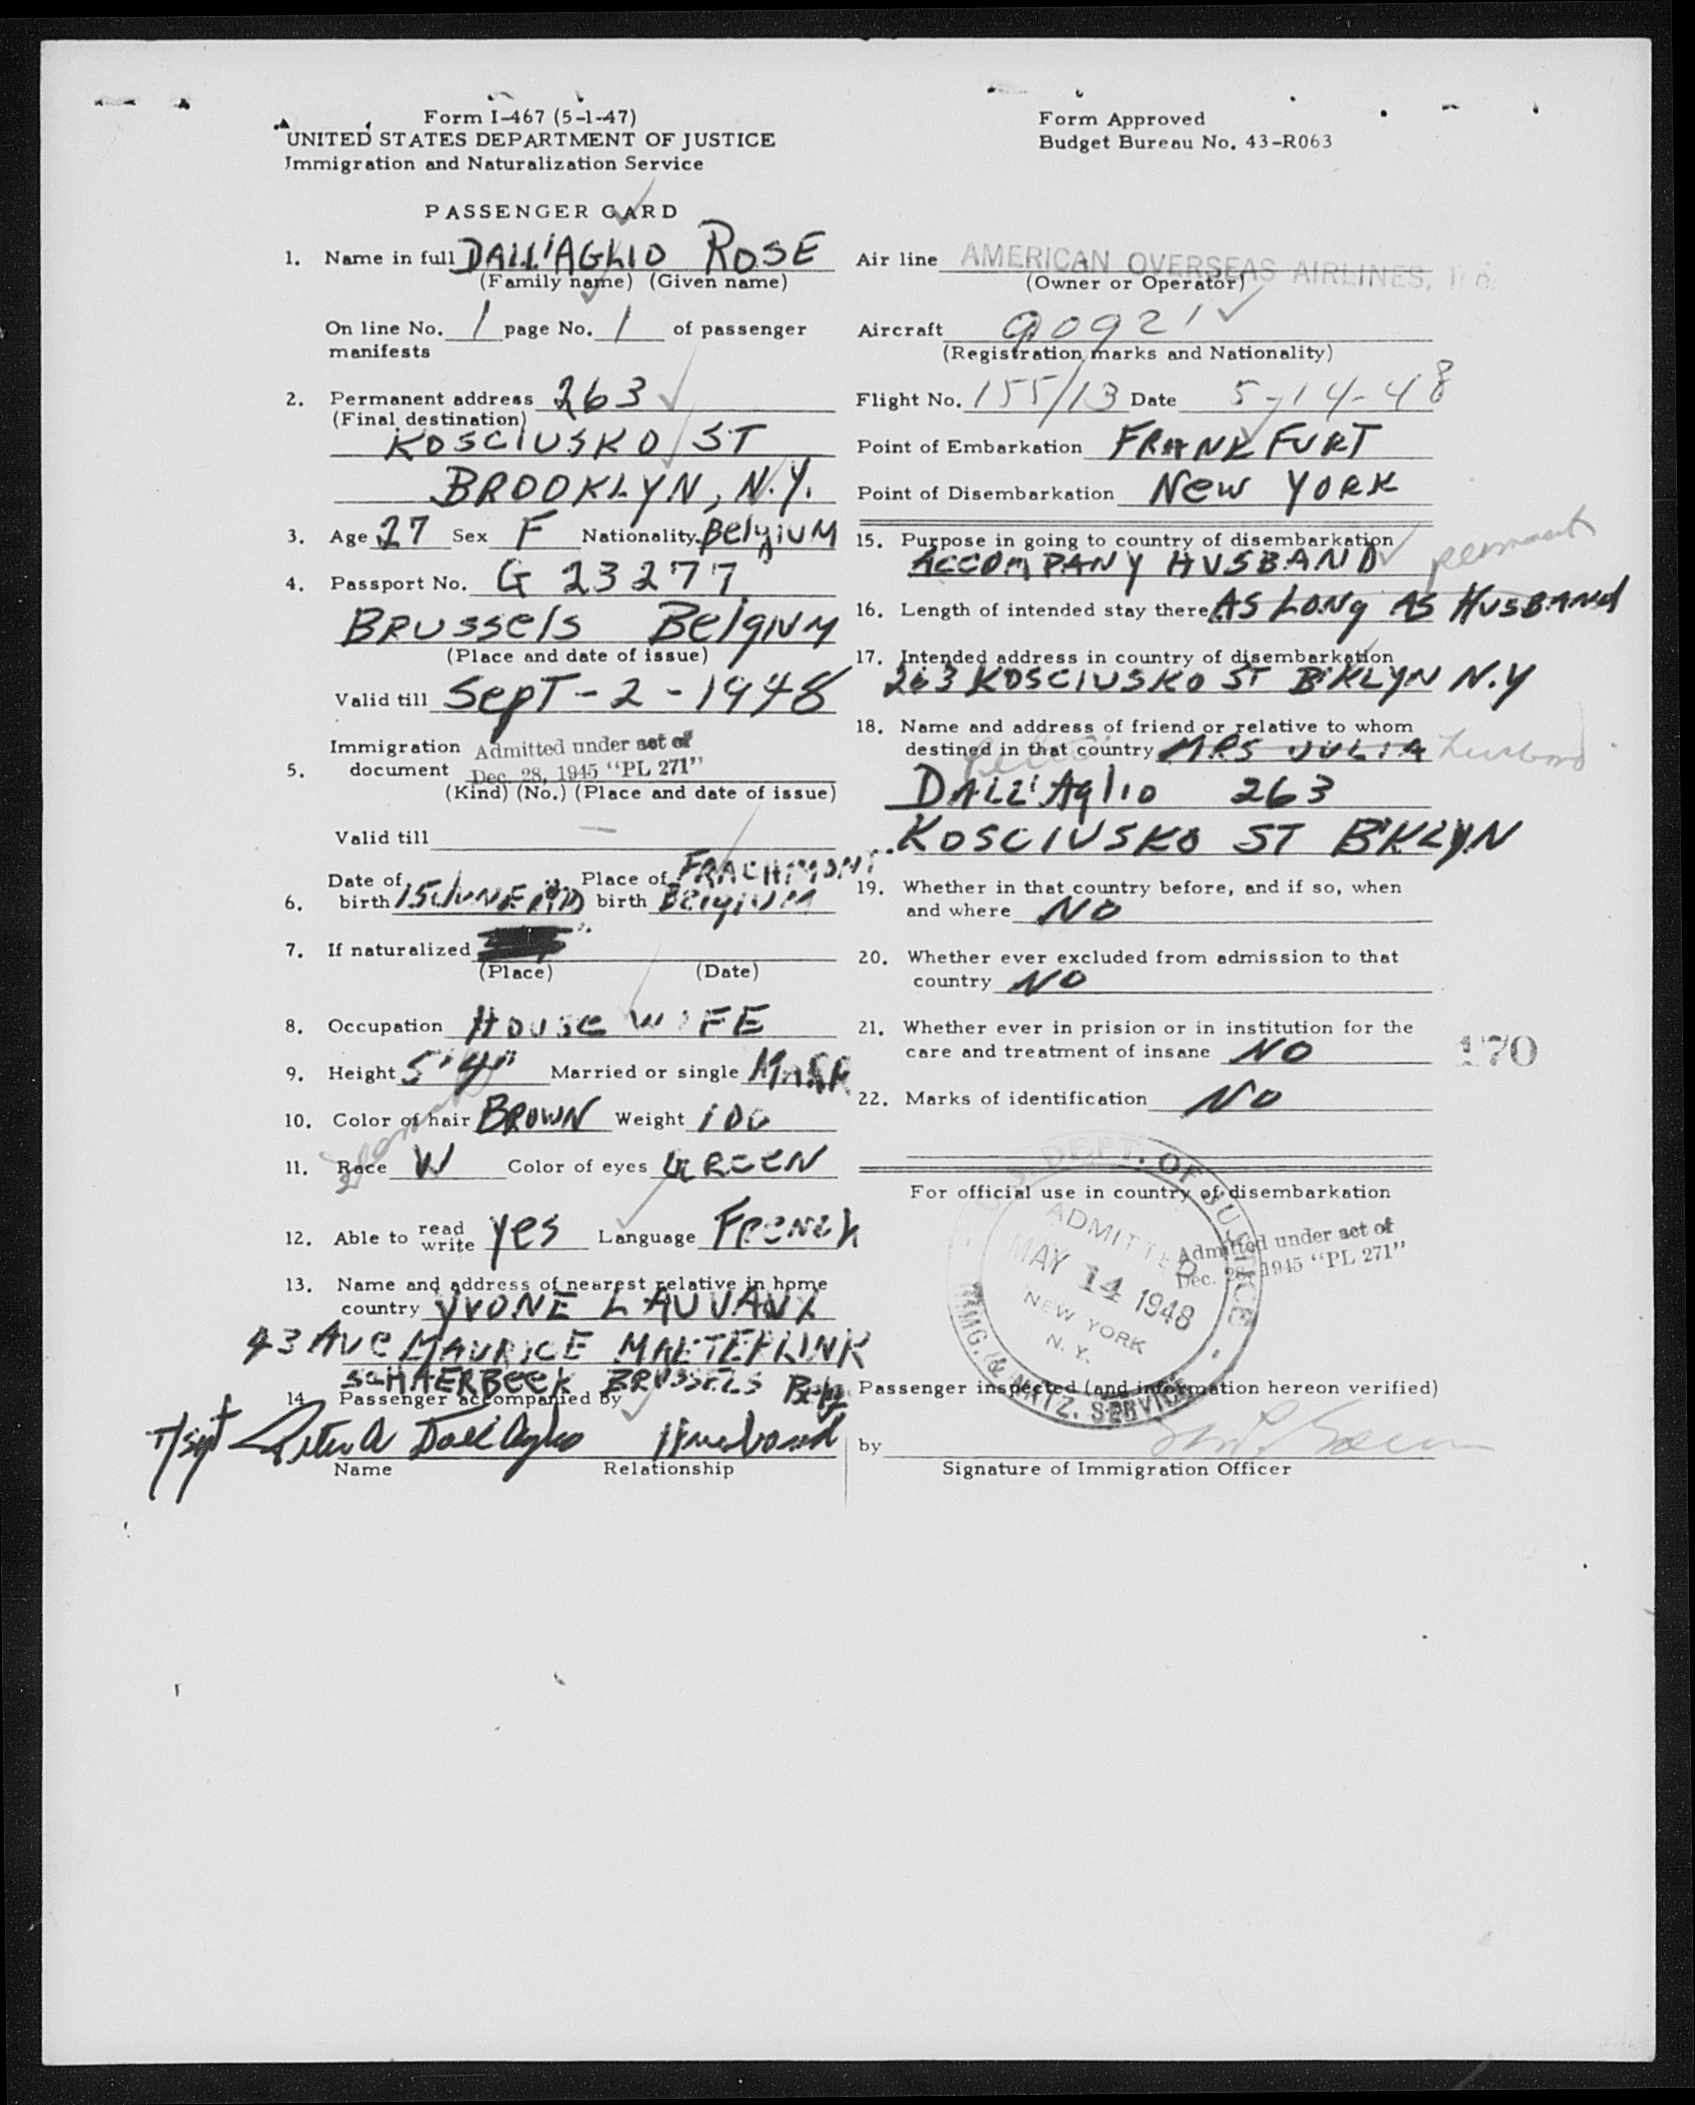 Form I-467 (5-1-47)
UNITED STATES DEPARTMENT OF JUSTICE
Immigration and Naturalization Service
PASSENGER CARD
1. Name in full DALL'AGLIO ROSE
(Family name) (Given name)
On line No. 1 page No. 1 of passenger
manifests
2. Permanent address 263
(Final destination)
KOSCIUSKO ST
BROOKLYN, N.Y.
3. Age 27 Sex F Nationality BelgiUM
4. Passport No. G 23277
BRUssels BelgIUM
(Place and date of issue)
Valid till SepT-2-1948
Immigration Admitted under act of
5. document Dec. 28, 1945 "PL 271"
(Kind) (No.) (Place and date of issue)
Valid till —
Date of Place of FRAChMONT
6. birth 15 JUNE birth BelgiUM
7. If naturalized
(Place) (Date)
8. Occupation HOUSe WIFE
9. Height 5'4" Married or single MARR
10. Color of hair BROWN Weight 100
11. Race W Color of eyes GREEN
12. Able to read write yes Language FRENCh
13. Name and address of nearest relative in home
country YVONE
43 AVe MAURICE MAETERLINK
SCHAERBeeK BRUSSELS Belg.
14. Passenger accompanied by
T/Sgt Peter A Dall'Aglio Husband
Name Relationship
Form Approved
Budget Bureau No. 43-R063
Air line AMERICAN OVERSEAS AIRLINES,
(Owner or Operator)
Aircraft 90921
(Registration marks and Nationality)
Flight No. 155/13 Date 5-14-48
Point of Embarkation FRANKFURT
Point of Disembarkation New YORK
15. Purpose in going to country of disembarkation
ACCOMPANY HUSBAND permanent
16. Length of intended stay there AS LONg AS HUSBANd
17. Intended address in country of disembarkation
263 KOSCIUSKO ST B'KLYN N.Y
18. Name and address of friend or relative to whom
destined in that country MRS JULIA husband
DALL'Aglio 263
KOSCIUSKO ST B'KLYN
19. Whether in that country before, and if so, when
and where NO
20. Whether ever excluded from admission to that
country NO
21. Whether ever in prision or in institution for the
care and treatment of insane NO
170
22. Marks of identification NO
For official use in country of disembarkation
U.S. DEPT. OF JUSTICE
ADMITTED
MAY 14 1948
NEW YORK
N. Y.
IMMG. & NATZ. SERVICE
Admitted under act of
Dec. 28, 1945 "PL 271"
Passenger inspected (and information hereon verified)
by
Signature of Immigration Officer